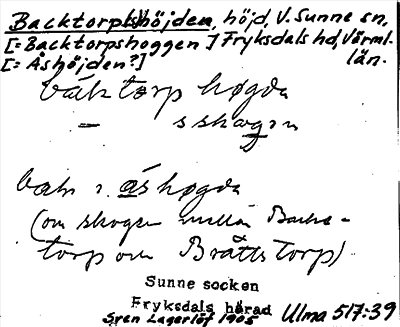 Backtorpshöjden, höjd, V. Sunne sn,
[= Backtorpshoggen] Fryksdals hd, Värml.
[= Åshöjden?] län.
báktorp høgda
— sskogen
bak i åshøgda
(om skogen mellan Back-
torp och Brättstorp)
Sunne socken
Fryksdals härad
Sven Lagerlöf 1905 Ulma 517:39